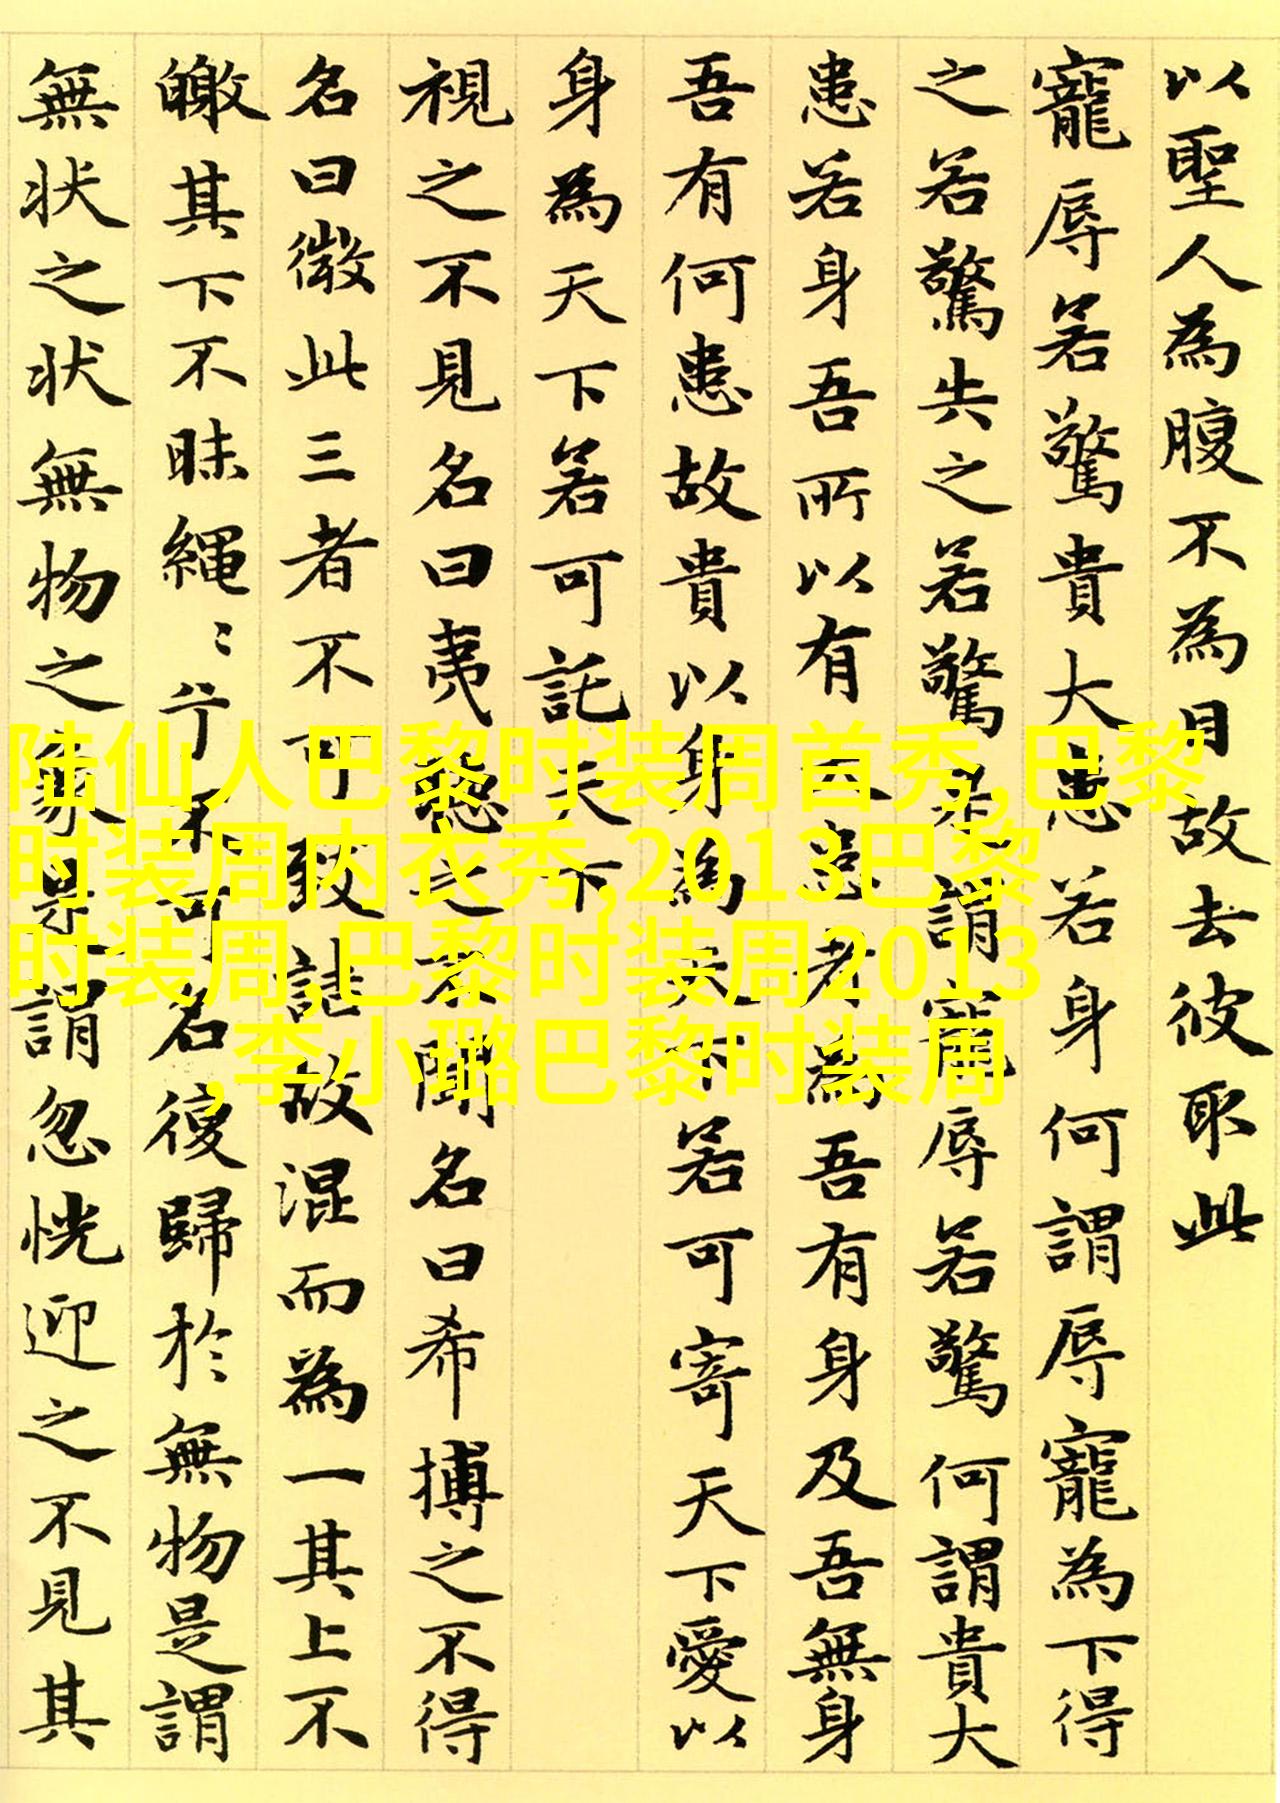 以聖人為腹不為目故去彼取此
寵辱若驚貴大患若身何謂辱寵為下得
之若驚失之若驚是謂寵辱若驚何謂貴大
患若身吾所以有大患者為吾有身及吾無身
吾有何患故貴以身為天下若可寄天下愛以
身為天下若可託天下
視之不見名曰夷聽之不聞名曰希搏之不得
名曰微此三者不可致詰故混而為一其上不
皦其下不昧繩〻兮不可名復歸於無物是謂
無状之状無物之象是謂忽恍迎之不見其
陆仙人巴黎时装周首秀,巴黎
时装周内衣秀,2013巴黎
时装周,巴黎时装周2013
,李小璐巴黎时装周